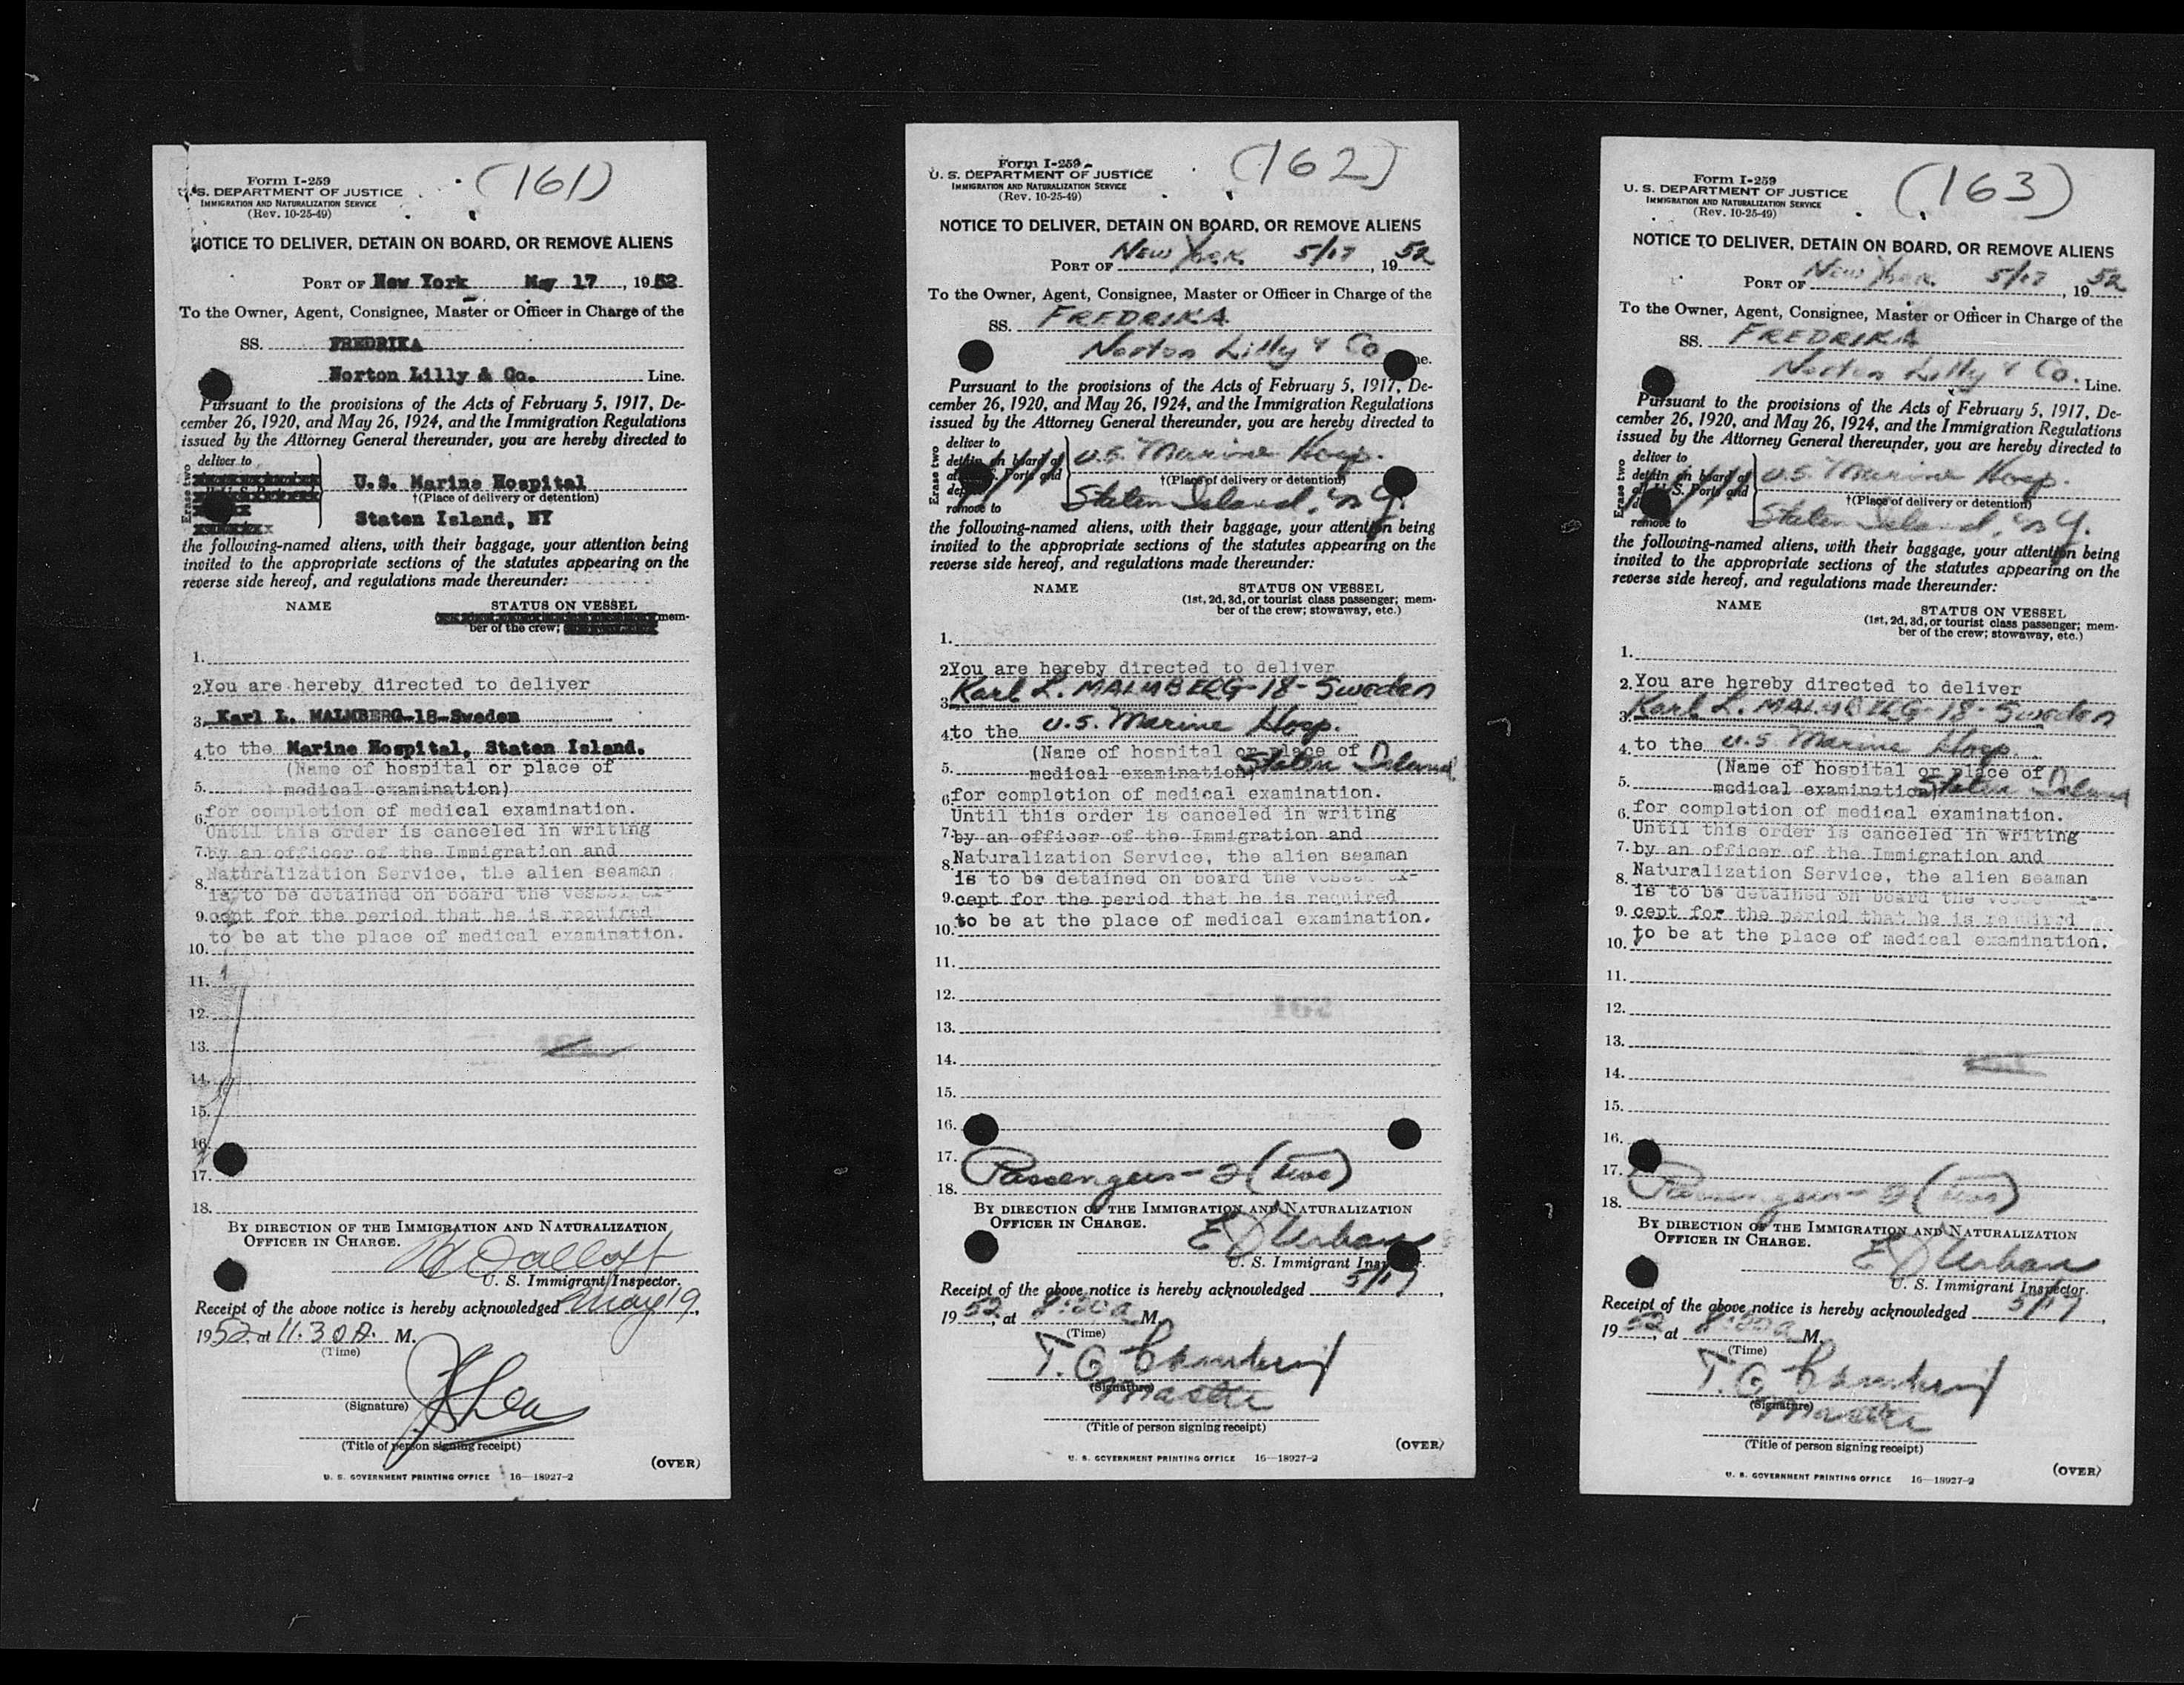 (161)
Form I-259
U. S. DEPARTMENT OF JUSTICE
IMMIGRATION AND NATURALIZATION SERVICE
(Rev. 10-25-49)
NOTICE TO DELIVER, DETAIN ON BOARD, OR REMOVE ALIENS
PORT OF New York May 17, 1952
To the Owner, Agent, Consignee, Master or Officer in Charge of the
SS. FREDRIKA
Norton Lilly & Co. Line.
Pursuant to the provisions of the Acts of February 5, 1917, De-
cember 26, 1920, and May 26, 1924, and the Immigration Regulations
issued by the Attorney General thereunder, you are hereby directed to
Erase two
deliver to
U.S. Marine Hospital
†(Place of delivery or detention)
Staten Island, NY
the following-named aliens, with their baggage, your attention being
invited to the appropriate sections of the statutes appearing on the
reverse side hereof, and regulations made thereunder:
NAME STATUS ON VESSEL
mem-
ber of the crew;
1.
2. You are hereby directed to deliver
3. Karl L. MALMBERG-18-Sweden
4. to the Marine Hospital, Staten Island.
(Name of hospital or place of
5. medical examination)
for completion of medical examination.
6.
Until this order is canceled in writing
7. by an officer of the Immigration and
Naturalization Service, the alien seaman
8.
is to be detained on board the vessel ex-
9. cept for the period that he is required
to be at the place of medical examination.
10.
11.
12.
13.
14.
15.
16.
17.
18.
BY DIRECTION OF THE IMMIGRATION AND NATURALIZATION
OFFICER IN CHARGE.
U. S. Immigrant Inspector.
Receipt of the above notice is hereby acknowledged May 19,
1952, at 11.30 A. M.
(Time)
(Signature)
(Title of person signing receipt)
(OVER)
U. S. GOVERNMENT PRINTING OFFICE 16—18927-2
(162)
Form I-259
U. S. DEPARTMENT OF JUSTICE
IMMIGRATION AND NATURALIZATION SERVICE
(Rev. 10-25-49)
NOTICE TO DELIVER, DETAIN ON BOARD, OR REMOVE ALIENS
PORT OF New York 5/17, 1952
To the Owner, Agent, Consignee, Master or Officer in Charge of the
SS. FREDRIKA
Norton Lilly & Co ne.
Pursuant to the provisions of the Acts of February 5, 1917, De-
cember 26, 1920, and May 26, 1924, and the Immigration Regulations
issued by the Attorney General thereunder, you are hereby directed to
Erase two
deliver to
detain on board at
Ports and
remove to
U.S. Marine Hosp.
†(Place of delivery or detention)
Staten Island, N.Y.
the following-named aliens, with their baggage, your attention being
invited to the appropriate sections of the statutes appearing on the
reverse side hereof, and regulations made thereunder:
NAME STATUS ON VESSEL
(1st, 2d, 3d, or tourist class passenger; mem-
ber of the crew; stowaway, etc.)
1.
2. You are hereby directed to deliver
3. Karl L. MALMBERG-18-Sweden
4. to the U.S. Marine Hosp.
(Name of hospital or place of
5. medical examination) Staten Island
6. for completion of medical examination.
Until this order is canceled in writing
7. by an officer of the Immigration and
8. Naturalization Service, the alien seaman
is to be detained on board the vessel ex-
9. cept for the period that he is required
10. to be at the place of medical examination.
11.
12.
162
13.
14.
15.
16.
17.
Passengers-2 (two)
18.
BY DIRECTION OF THE IMMIGRATION AND NATURALIZATION
OFFICER IN CHARGE.
E D Urban
U. S. Immigrant Inspector.
Receipt of the above notice is hereby acknowledged 5/17,
1952, at 8:00 a M.
(Time)
T. G.
(Signature)
Master
(Title of person signing receipt)
(OVER)
U. S. GOVERNMENT PRINTING OFFICE 16—18927-2
(163)
Form I-259
U. S. DEPARTMENT OF JUSTICE
IMMIGRATION AND NATURALIZATION SERVICE
(Rev. 10-25-49)
NOTICE TO DELIVER, DETAIN ON BOARD, OR REMOVE ALIENS
PORT OF New York 5/17, 1952
To the Owner, Agent, Consignee, Master or Officer in Charge of the
SS. FREDRIKA
Norton Lilly & Co. Line.
Pursuant to the provisions of the Acts of February 5, 1917, De-
cember 26, 1920, and May 26, 1924, and the Immigration Regulations
issued by the Attorney General thereunder, you are hereby directed to
Erase two
deliver to
detain on board at
S. Ports and
remove to
U.S. Marine Hosp.
†(Place of delivery or detention)
Staten Island, N.Y.
the following-named aliens, with their baggage, your attention being
invited to the appropriate sections of the statutes appearing on the
reverse side hereof, and regulations made thereunder:
NAME STATUS ON VESSEL
(1st, 2d, 3d, or tourist class passenger; mem-
ber of the crew; stowaway, etc.)
1.
2. You are hereby directed to deliver
3. Karl L. MALMBERG-18-Sweden
4. to the U.S Marine Hosp.
(Name of hospital or place of
5. medical examination) Staten Island
6. for completion of medical examination.
Until this order is canceled in writing
7. by an officer of the Immigration and
8. Naturalization Service, the alien seaman
is to be detained on board the vessel ex-
9. cept for the period that he is required
10. to be at the place of medical examination.
11.
12.
13.
14.
15.
16.
17.
Passengers-2 (two)
18.
BY DIRECTION OF THE IMMIGRATION AND NATURALIZATION
OFFICER IN CHARGE.
E D Urban
U. S. Immigrant Inspector.
Receipt of the above notice is hereby acknowledged 5/17,
1952, at 8:00 a M.
(Time)
T. G.
(Signature)
Master
(Title of person signing receipt)
(OVER)
U. S. GOVERNMENT PRINTING OFFICE 16—18927-2